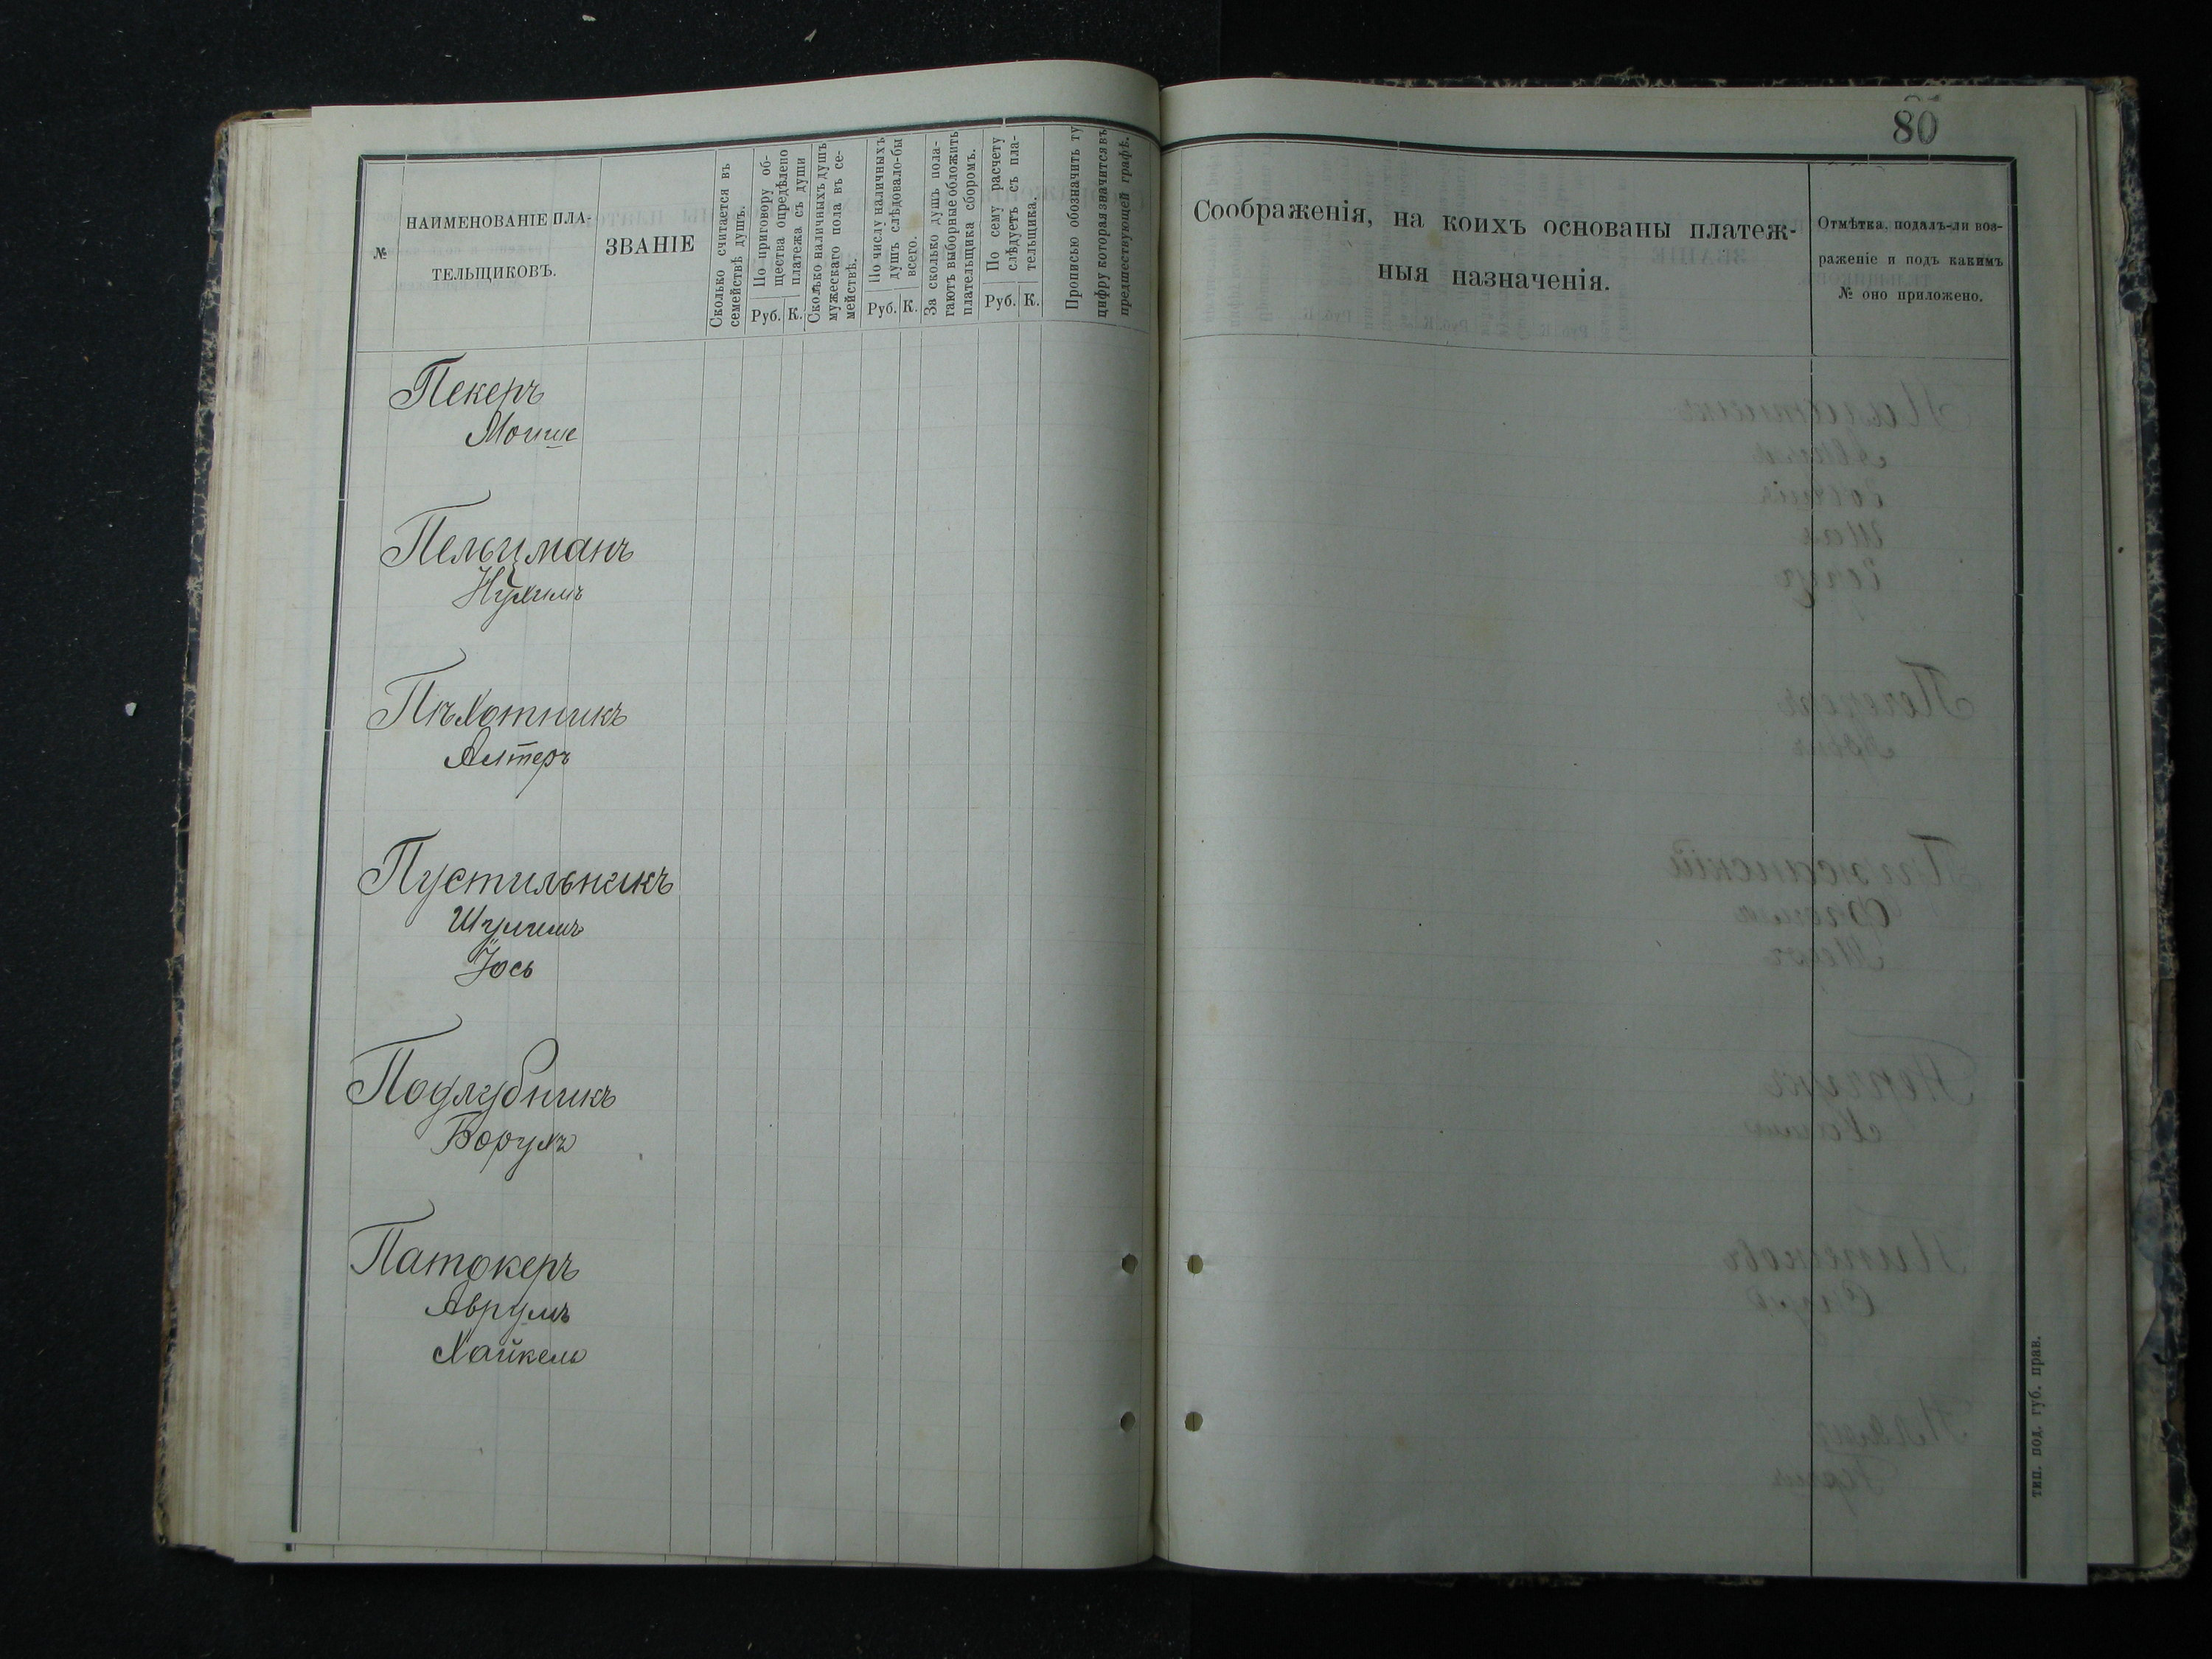 80
№
НАИМЕНОВАНІЕ ПЛА-
ТЕЛЬЩИКОВЪ.
ЗВАНІЕ
Сколько считается въ
семействѣ душъ.
По приговору об-
щества опредѣлено
платежа съ души
Руб. К.
Сколько наличныхъ душъ
мужескаго пола въ се-
мействѣ.
По числу наличныхъ
душъ слѣдовало-бы
всего.
Руб. К.
За сколько душъ пола-
гаютъ выборные обложить
плательщика сборомъ.
По сему расчету
слѣдуетъ съ пла-
тельщика.
Руб. К.
Прописью обозначить ту
цифру которая значится въ
предшествующей графѣ.
Соображенія, на коихъ основаны платеж-
ныя назначенія.
Отмѣтка, подалъ-ли воз-
раженіе и подъ какимъ
№ оно приложено.
Пекеръ
Мошше
Пельцманъ
Нухимъ
Пѣхотникъ
Алтеръ
Пустильникъ
Шулимъ
Іось
Подлубникъ
Борухъ
Патокеръ
Аврумъ
Хайкель
тип. под. губ. прав.